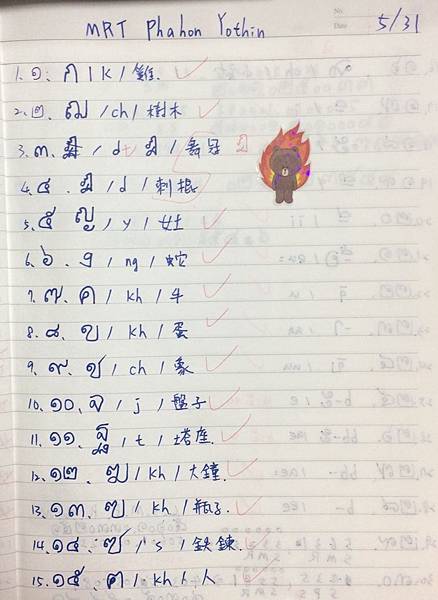 No.
MRT Phahon Yothin
Date 5/31
1. ๑. ก / k / 雞
2. ๒. ฌ / ch / 樹木
3. ๓. / d ฎ / 舞冠 ฎ
4. ๔. ฎ / d / 刺棍
5. ๕ ญ / y / 女士
6. ๖. ง / ng / 蛇
7. ๗. ค / kh / 斗
8. ๘. ข / kh / 蛋
9. ๙. ช / ch / 象
10. ๑๐. จ / j / 盤子
11. ๑๑. ฐ / t / 塔座
12. ๑๒. ฆ / kh / 大鐘
13. ๑๓. ฃ / kh / 瓶子
14. ๑๔. ซ / s / 鉄鍊
15. ๑๕. ฅ / kh / 人